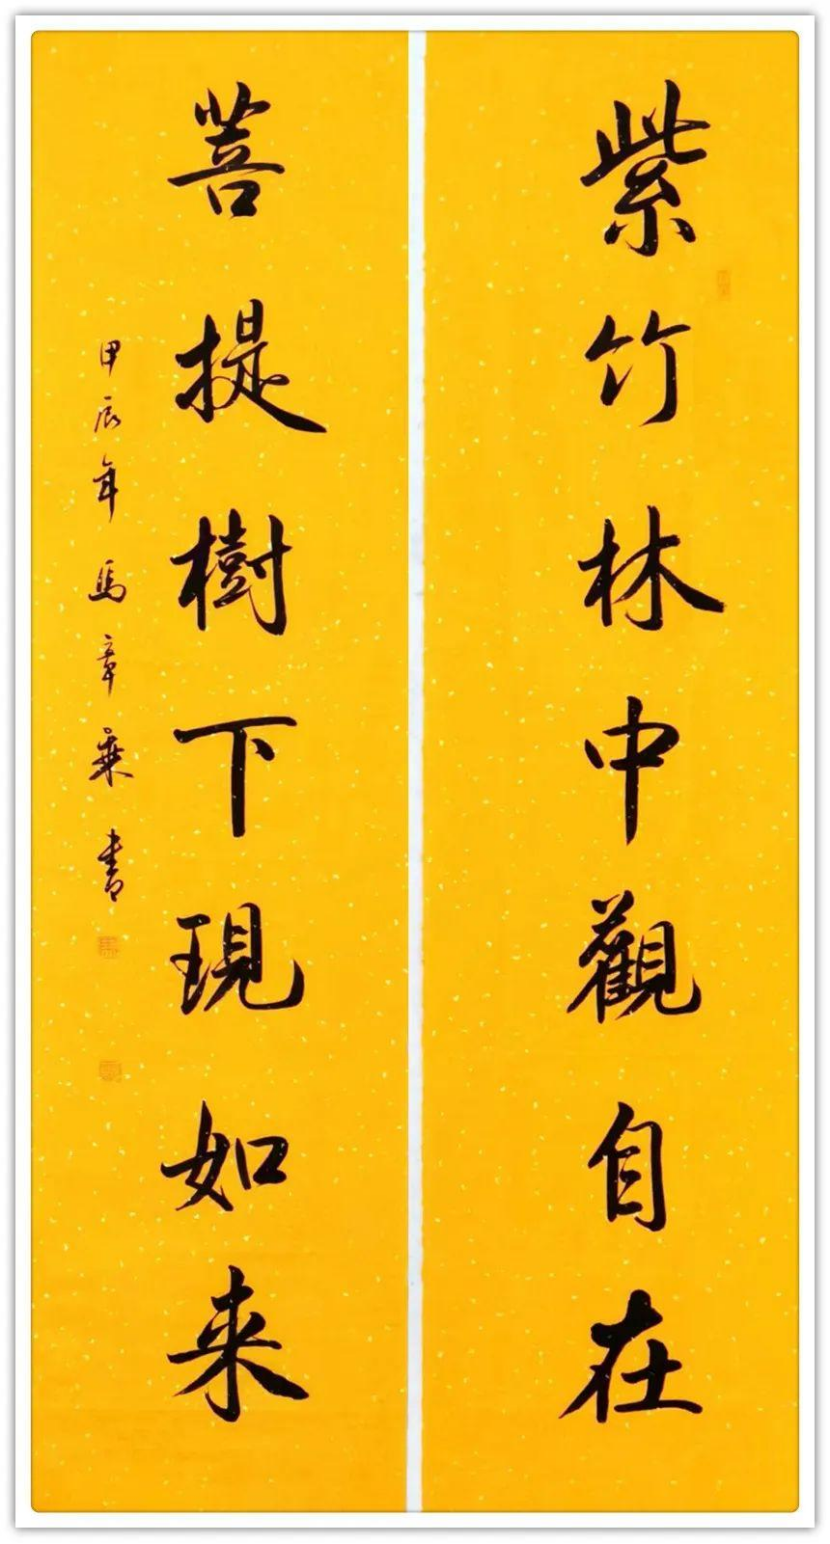 紫竹林中觀自在
菩提樹下現如来
甲辰年馬章乘書